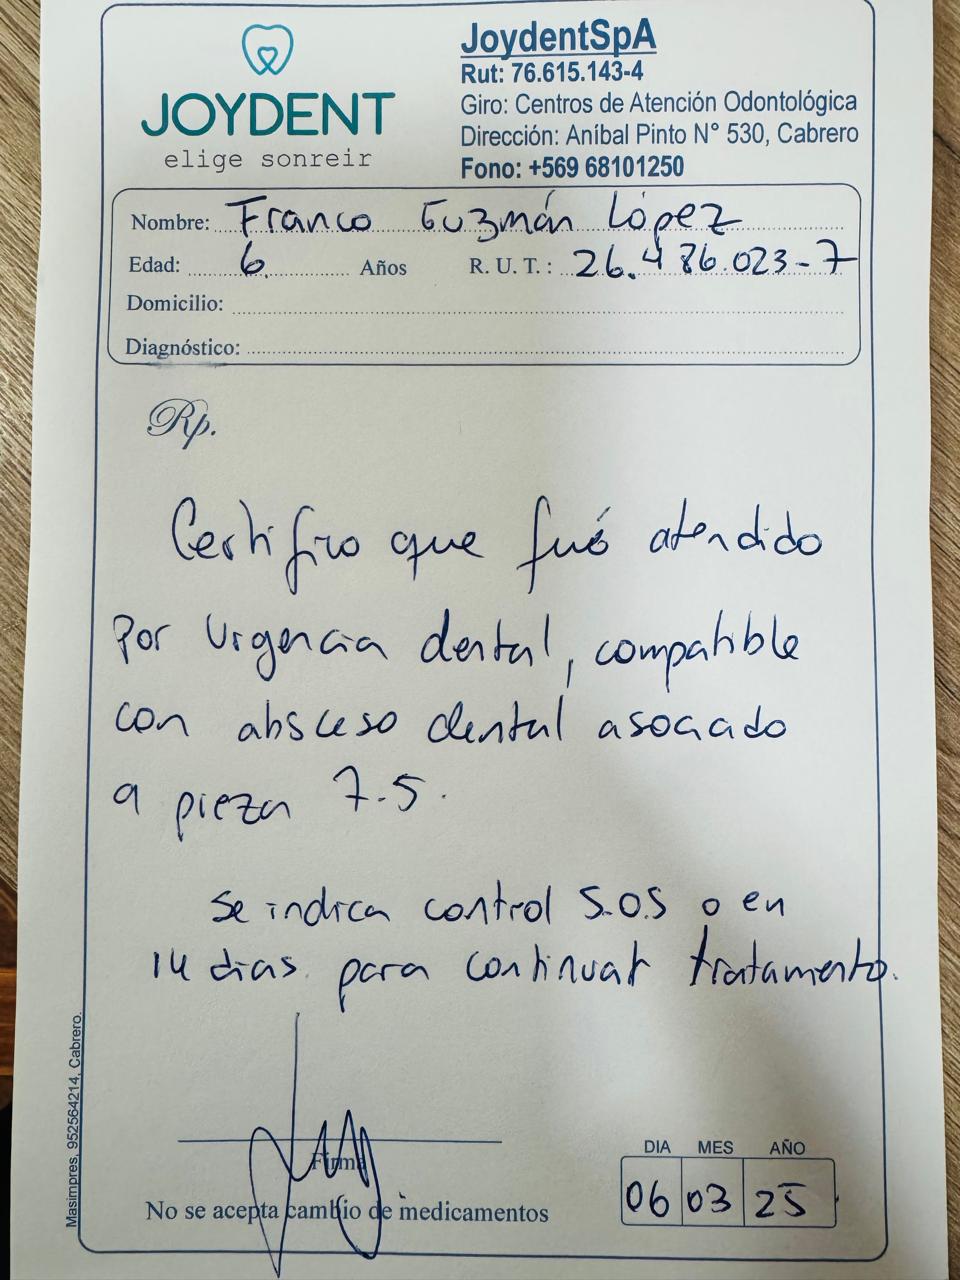 JOYDENT
elige sonreir
JoydentSpA
Rut: 76.615.143-4
Giro: Centros de Atención Odontológica
Dirección: Aníbal Pinto N° 530, Cabrero
Fono: +569 68101250
Nombre: Franco Guzmán López
Edad: 6 Años R. U. T. : 26.486.023-7
Domicilio:
Diagnóstico:
Rp.
Certifico que fué atendido
por urgencia dental, compatible
con absceso dental asociado
a pieza 7.5.
Se indica control S.O.S o en
14 dias para continuar tratamento.
Firma
No se acepta cambio de medicamentos
DIA MES AÑO
06 03 25
Masimpres, 952564214, Cabrero.